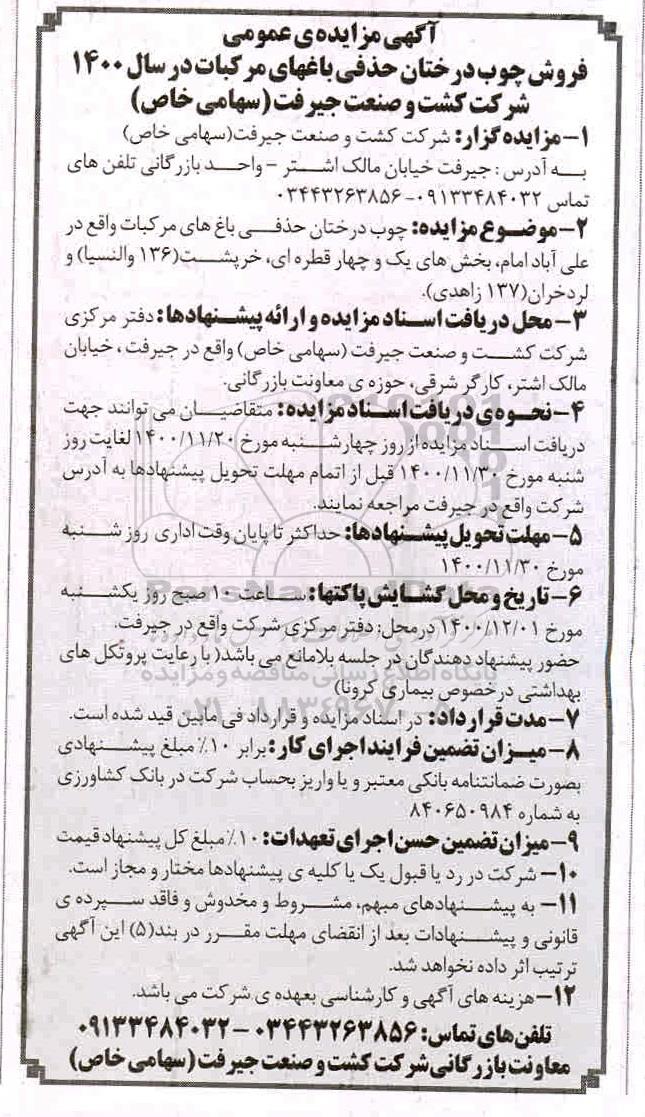 آگهی مزایده ی عمومی
فروش چوب درختان حذفی باغهای مرکبات در سال ۱۴۰۰
شرکت کشت و صنعت جیرفت (سهامی خاص)
۱- مزایده گزار: شرکت کشت و صنعت جیرفت(سهامی خاص)
به آدرس : جیرفت خیابان مالک اشتر - واحد بازرگانی تلفن های
تماس ۰۹۱۳۳۴۸۴۰۳۲-۰۳۴۴۳۲۶۳۸۵۶
۲- موضوع مزایده: چوب درختان حذفی باغ های مرکبات واقع در
علی آباد امام، بخش های یک و چهار قطره ای، خرپشت(۱۳۶ والنسیا) و
لردخران(۱۳۷ زاهدی).
۳- محل دریافت اسناد مزایده و ارائه پیشنهادها: دفتر مرکزی
شرکت کشت و صنعت جیرفت (سهامی خاص) واقع در جیرفت ، خیابان
مالک اشتر، کارگر شرقی، حوزه ی معاونت بازرگانی.
۴- نحوه ی دریافت اسناد مزایده: متقاضیان می توانند جهت
دریافت اسناد مزایده از روز چهارشنبه مورخ ۱۴۰۰/۱۱/۲۰ لغایت روز
شنبه مورخ ۱۴۰۰/۱۱/۳۰ قبل از اتمام مهلت تحویل پیشنهادها به آدرس
شرکت واقع در جیرفت مراجعه نمایند.
۵- مهلت تحویل پیشنهادها: حداکثر تا پایان وقت اداری روز شنبه
مورخ ۱۴۰۰/۱۱/۳۰
۶- تاریخ و محل گشایش پاکتها: ساعت ۱۰ صبح روز یکشنبه
مورخ ۱۴۰۰/۱۲/۰۱ در محل: دفتر مرکزی شرکت واقع در جیرفت.
حضور پیشنهاد دهندگان در جلسه بلامانع می باشد( با رعایت پروتکل های
بهداشتی در خصوص بیماری کرونا)
۷- مدت قرارداد: در اسناد مزایده و قرارداد فی مابین قید شده است.
۸- میزان تضمین فرایند اجرای کار: برابر ۱۰٪ مبلغ پیشنهادی
بصورت ضمانتنامه بانکی معتبر و یا واریز بحساب شرکت در بانک کشاورزی
به شماره ۸۴۰۶۵۰۹۸۴
۹- میزان تضمین حسن اجرای تعهدات: ۱۰٪ مبلغ کل پیشنهاد قیمت
۱۰- شرکت در رد یا قبول یک یا کلیه ی پیشنهادها مختار و مجاز است.
۱۱- به پیشنهادهای مبهم، مشروط و مخدوش و فاقد سپرده ی
قانونی و پیشنهادات بعد از انقضای مهلت مقرر در بند(۵) این آگهی
ترتیب اثر داده نخواهد شد.
۱۲- هزینه های آگهی و کارشناسی بعهده ی شرکت می باشد.
تلفن های تماس: ۰۳۴۴۳۲۶۳۸۵۶ - ۰۹۱۳۳۴۸۴۰۳۲
معاونت بازرگانی شرکت کشت و صنعت جیرفت (سهامی خاص)